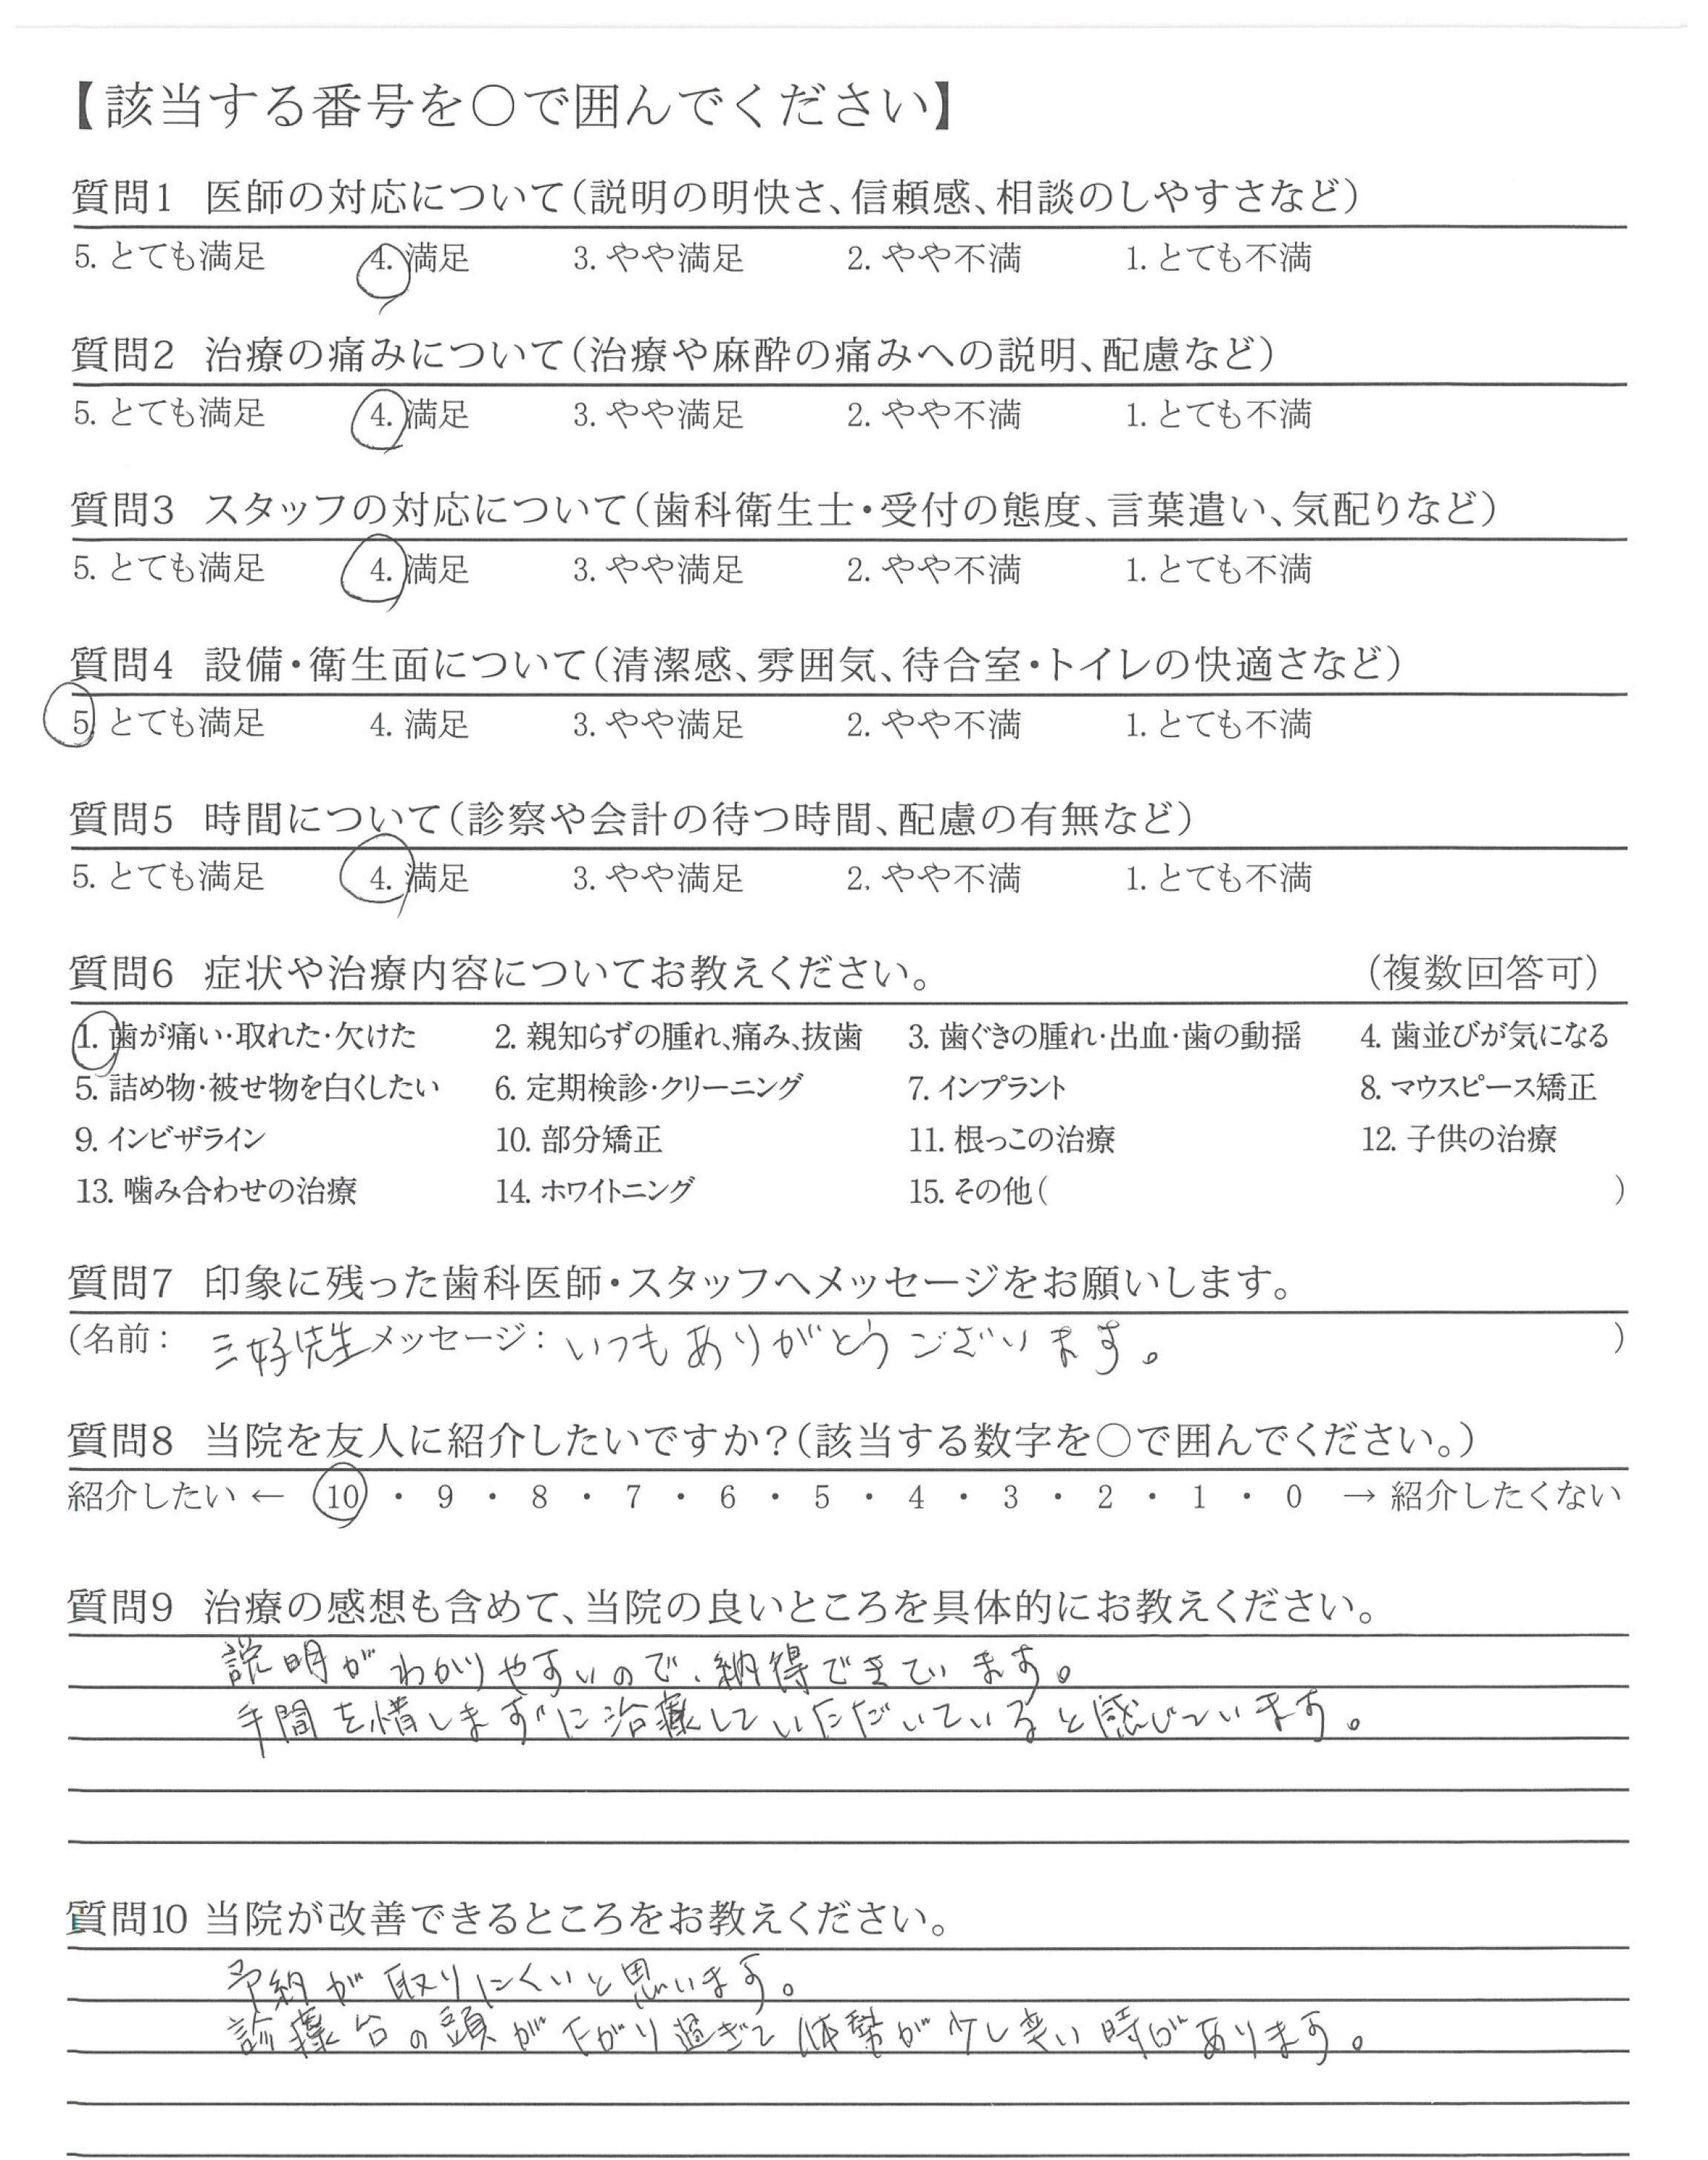 【該当する番号を○で囲んでください】
質問1 医師の対応について(説明の明快さ、信頼感、相談のしやすさなど)
5. とても満足 4. 満足 3. やや満足 2. やや不満 1. とても不満
質問2 治療の痛みについて(治療や麻酔の痛みへの説明、配慮など)
5. とても満足 4. 満足 3. やや満足 2. やや不満 1. とても不満
質問3 スタッフの対応について(歯科衛生士・受付の態度、言葉遣い、気配りなど)
5. とても満足 4. 満足 3. やや満足 2. やや不満 1. とても不満
質問4 設備・衛生面について(清潔感、雰囲気、待合室・トイレの快適さなど)
5. とても満足 4. 満足 3. やや満足 2. やや不満 1. とても不満
質問5 時間について(診察や会計の待つ時間、配慮の有無など)
5. とても満足 4. 満足 3. やや満足 2. やや不満 1. とても不満
質問6 症状や治療内容についてお教えください。 (複数回答可)
1. 歯が痛い・取れた・欠けた 2. 親知らずの腫れ、痛み、抜歯 3. 歯ぐきの腫れ・出血・歯の動揺 4. 歯並びが気になる
5. 詰め物・被せ物を白くしたい 6. 定期検診・クリーニング 7. インプラント 8. マウスピース矯正
9. インビザライン 10. 部分矯正 11. 根っこの治療 12. 子供の治療
13. 噛み合わせの治療 14. ホワイトニング 15. その他( )
質問7 印象に残った歯科医師・スタッフへメッセージをお願いします。
(名前: 三好先生 メッセージ: いつもありがとうございます。 )
質問8 当院を友人に紹介したいですか?(該当する数字を○で囲んでください。)
紹介したい ← 10 ・ 9 ・ 8 ・ 7 ・ 6 ・ 5 ・ 4 ・ 3 ・ 2 ・ 1 ・ 0 → 紹介したくない
質問9 治療の感想も含めて、当院の良いところを具体的にお教えください。
説明がわかりやすいので、納得できています。
手間を惜しまずに治療していただいていると感じています。
質問10 当院が改善できるところをお教えください。
予約が取りにくいと思います。
診療台の頭が下がり過ぎて体勢が少し辛い時があります。